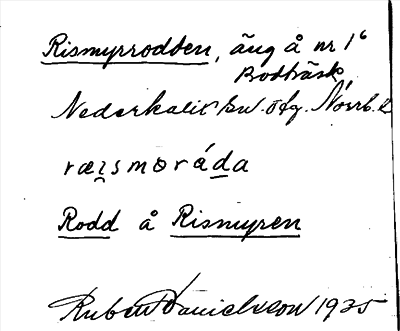 Rismyrrodden, äng å nr 1⁶
Bodträsk
Nederkalix sn. Norrb. l.
ræi̯smoráda
Rodd å Rismyren
Ruben Danielsson 1935